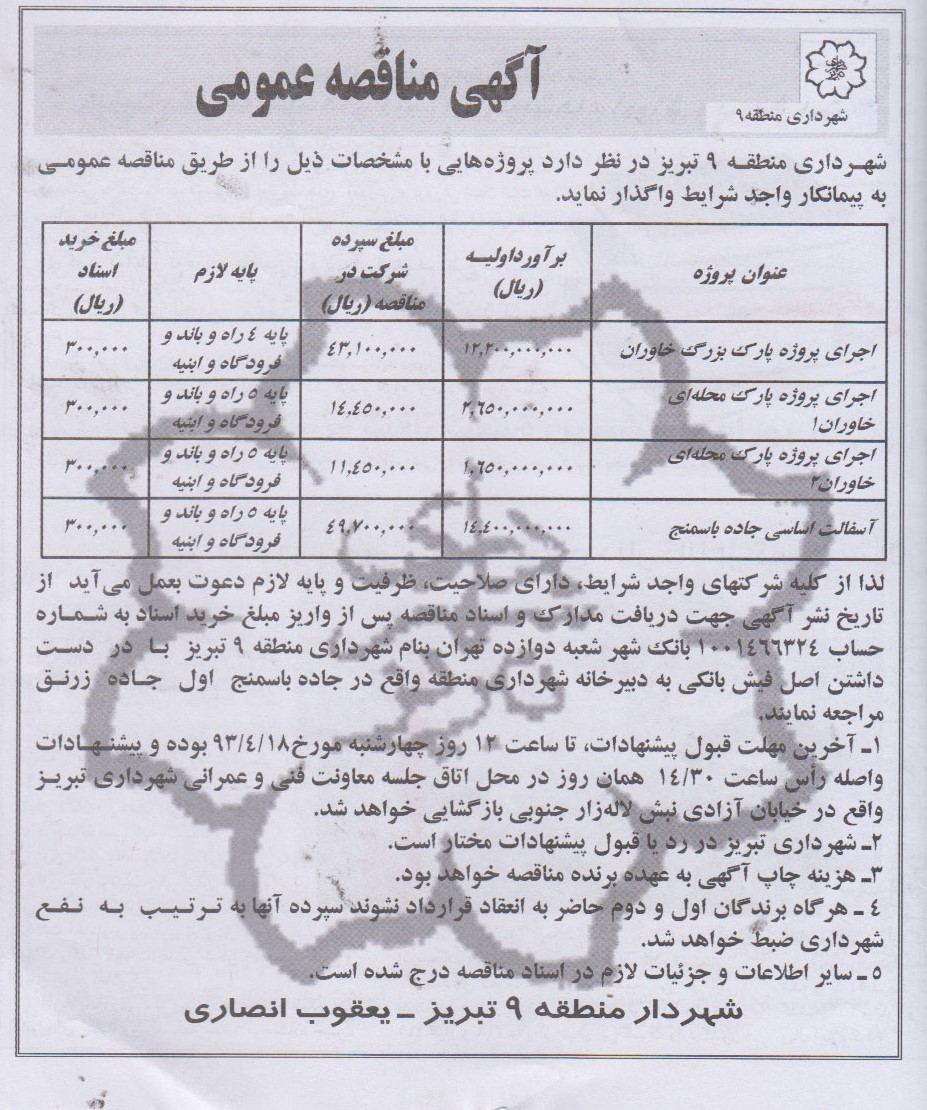 آگهی مناقصه عمومی
شهرداری منطقه۹
شهرداری منطقه ۹ تبریز در نظر دارد پروژه‌هایی با مشخصات ذیل را از طریق مناقصه عمومی
به پیمانکار واجد شرایط واگذار نماید.
عنوان پروژه | برآورد اولیه (ریال) | مبلغ سپرده شرکت در مناقصه (ریال) | پایه لازم | مبلغ خرید اسناد (ریال)
اجرای پروژه پارک بزرگ خاوران | ۱۲,۲۰۰,۰۰۰,۰۰۰ | ۴۳,۱۰۰,۰۰۰ | پایه ۴ راه و باند و فرودگاه و ابنیه | ۳۰۰,۰۰۰
اجرای پروژه پارک محله‌ای خاوران۱ | ۲,۶۵۰,۰۰۰,۰۰۰ | ۱۴,۴۵۰,۰۰۰ | پایه ۵ راه و باند و فرودگاه و ابنیه | ۳۰۰,۰۰۰
اجرای پروژه پارک محله‌ای خاوران۲ | ۱,۶۵۰,۰۰۰,۰۰۰ | ۱۱,۴۵۰,۰۰۰ | پایه ۵ راه و باند و فرودگاه و ابنیه | ۳۰۰,۰۰۰
آسفالت اساسی جاده باسمنج | ۱۴,۴۰۰,۰۰۰,۰۰۰ | ۴۹,۷۰۰,۰۰۰ | پایه ۵ راه و باند و فرودگاه و ابنیه | ۳۰۰,۰۰۰
لذا از کلیه شرکتهای واجد شرایط، دارای صلاحیت، ظرفیت و پایه لازم دعوت بعمل می‌آید از
تاریخ نشر آگهی جهت دریافت مدارک و اسناد مناقصه پس از واریز مبلغ خرید اسناد به شماره
حساب ۱۰۰۱۴۶۶۳۲۴ بانک شهر شعبه دوازده تهران بنام شهرداری منطقه ۹ تبریز با در دست
داشتن اصل فیش بانکی به دبیرخانه شهرداری منطقه واقع در جاده باسمنج اول جاده زرنق
مراجعه نمایند.
۱ـ آخرین مهلت قبول پیشنهادات، تا ساعت ۱۲ روز چهارشنبه مورخ۹۳/۴/۱۸ بوده و پیشنهادات
واصله رأس ساعت ۱۴/۳۰ همان روز در محل اتاق جلسه معاونت فنی و عمرانی شهرداری تبریز
واقع در خیابان آزادی نبش لاله‌زار جنوبی بازگشایی خواهد شد.
۲ـ شهرداری تبریز در رد یا قبول پیشنهادات مختار است.
۳ـ هزینه چاپ آگهی به عهده برنده مناقصه خواهد بود.
۴ ـ هرگاه برندگان اول و دوم حاضر به انعقاد قرارداد نشوند سپرده آنها به ترتیب به نفع
شهرداری ضبط خواهد شد.
۵ ـ سایر اطلاعات و جزئیات لازم در اسناد مناقصه درج شده است.
شهردار منطقه ۹ تبریز ـ یعقوب انصاری